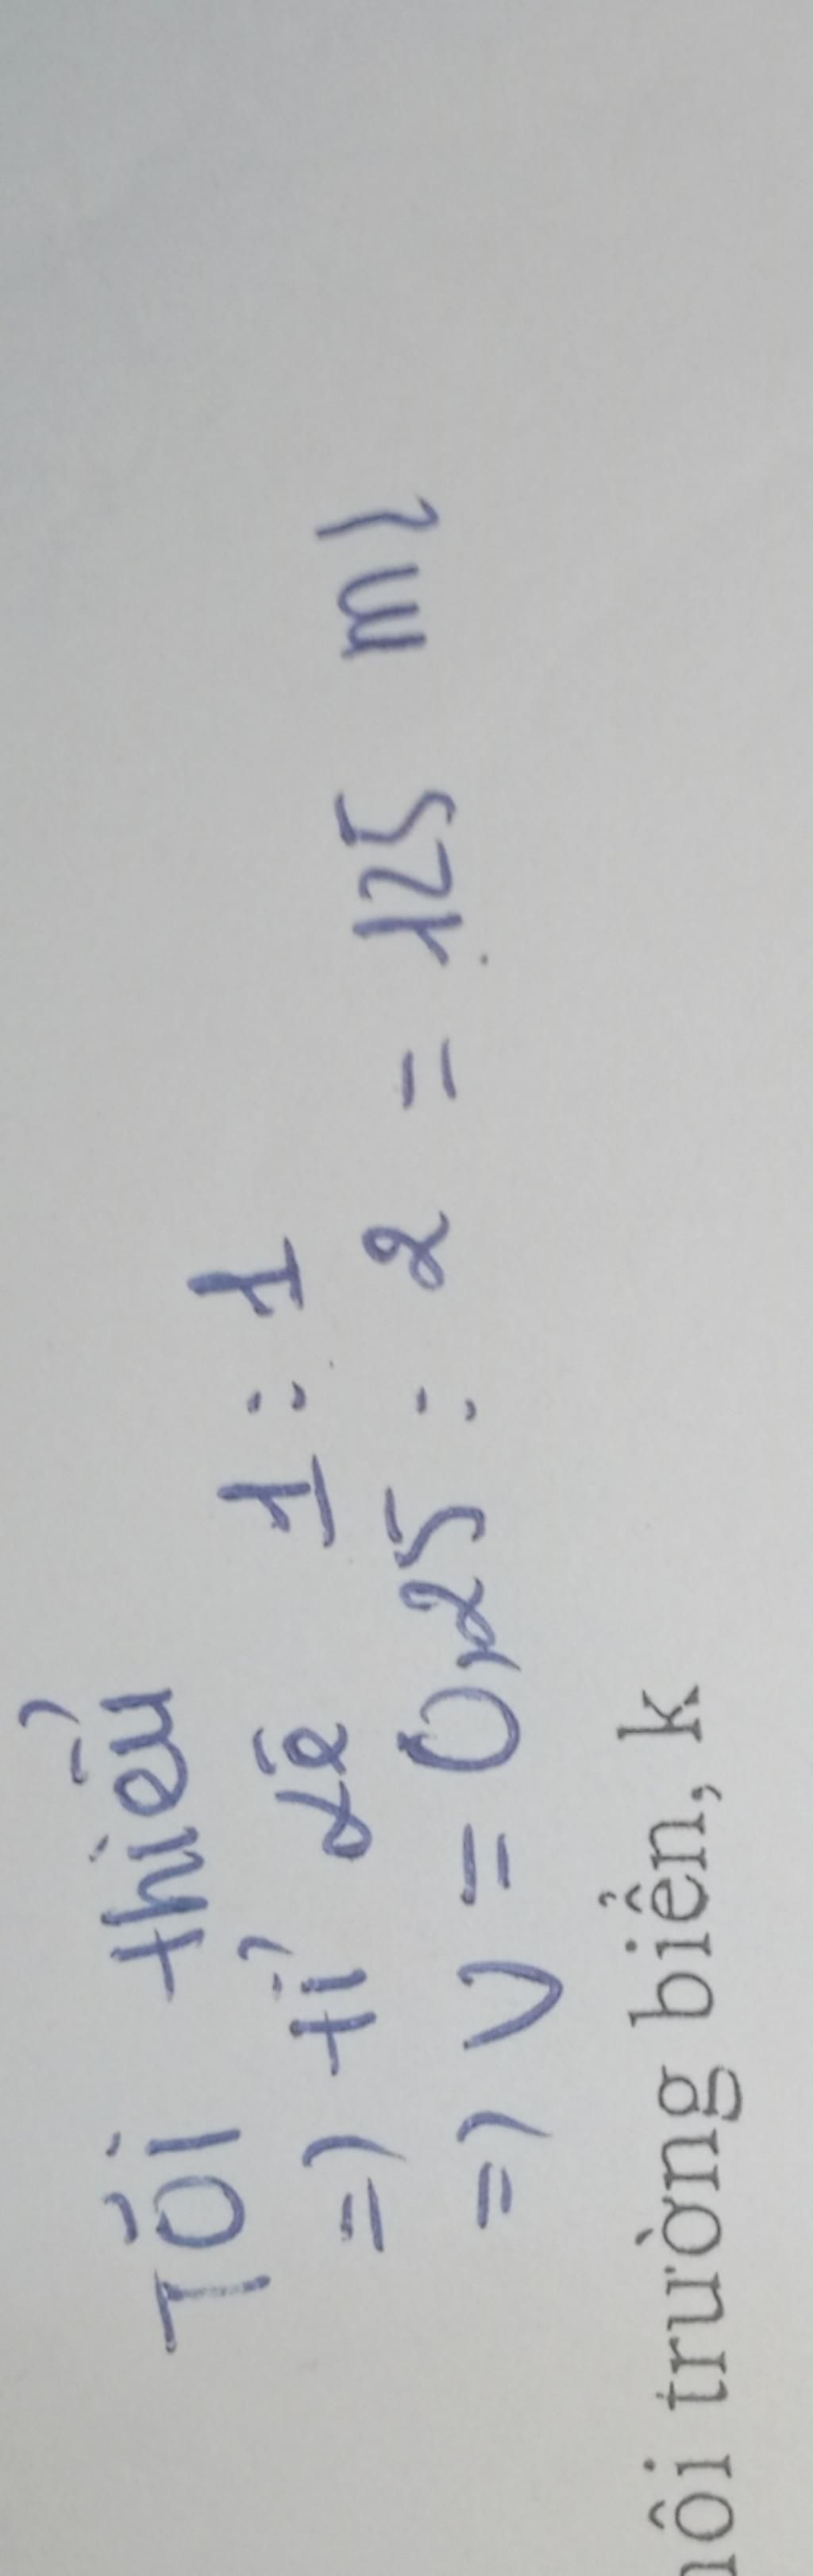 Tối thiểu
=) tỉ lệ 1 : 1
=) V = 0,25 : 2 = 125 ml
ôi trường biển, k